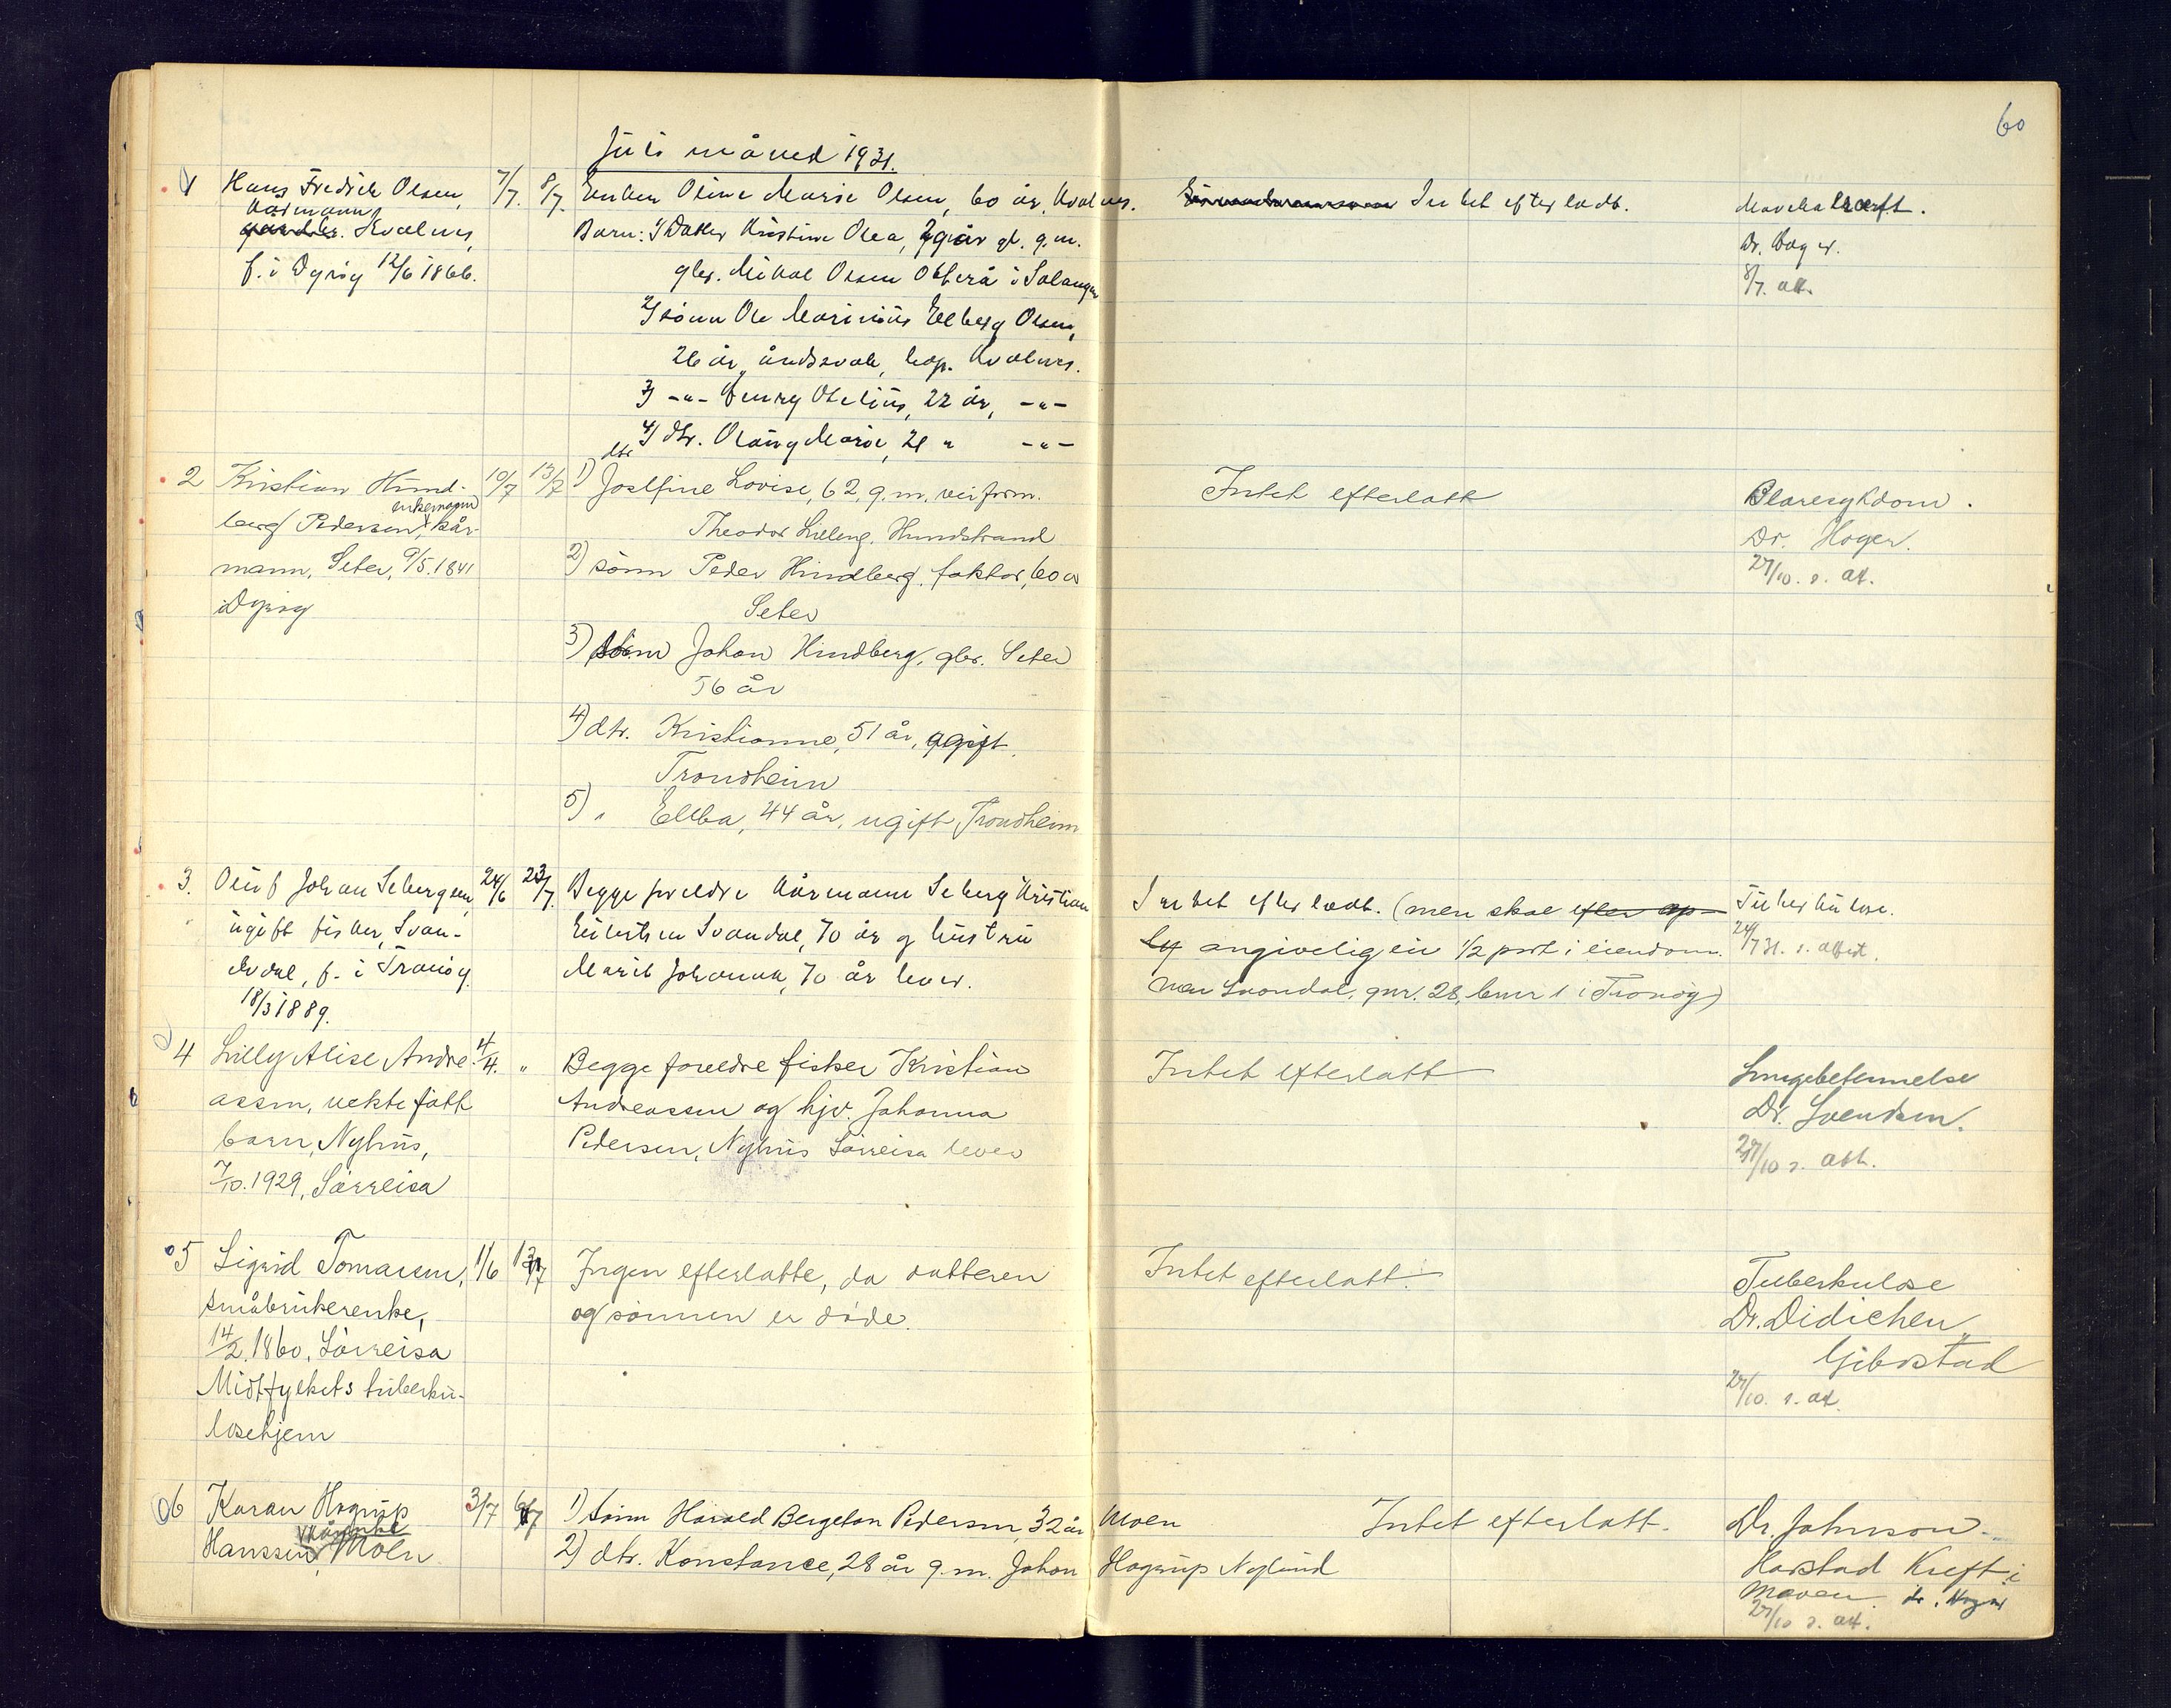 60
Juli måned 1931.
1 Hans Fredrik Olsen, 7/7. 8/7. Enken Oline Marie Olsen, 60 år, Kvalnes. Intet efterladt. Mavekræft.
kårmann,
gårdbr. Kvalnes, Barn: 1) Datter Kristine Olea, år gl. g.m. Dr. Høger.
f. i Dyrøy 12/6 1866. gbr. Mikal Olsen i Salangen 8/7. att.
2) sönn Ole Marinius Elberg Olsen,
26 år, åndssvak, Kvalnes.
3) -"- Henry Otelius, 22 år, -"-
4) dtr. Olaug Marie, 21 " -"-
2 Kristian Hund- 10/7 13/7 dtr 1) Josefine Lovise, 62, g.m. Intet efterlatt Blæresykdom.
enkemann
berg Pedersen, kår- Theodor Lilleng, Hundstrand Dr. Høger.
mann, Seter, 9/5.1841 2) sönn Peder Hundberg, faktor, 60 år 27/10. s. att.
i Dyröy Seter
3) sönn Johan Hundberg, gbr. Seter
56 år
4) dtr. Kristianne, 51 år, ugift,
Trondheim
5) " Ellba, 44 år, ugift Trondheim
3. Oluf Johan Sebergsen, 24/6 23/7. Begge foreldre kårmann Seberg Kristian Intet efterladt. (men skal efter op- Tuberkulose.
ugift fisker, Svan- Eilertsen Svandal, 70 år og hustru ly angivelig eie 1/2 part i eiendom- 24/7 31. s. attest.
dal, f. i Tranöy Marit Johanna, 70 år lever. men Svandal, gnr. 28, bnr 1 i Tranöy)
18/3 1889.
4 Lilly Alise Andre- 4/4. " Begge foreldre fisker Kristian Intet efterlatt Lungebetennelse
assen, uekte født Andreassen og hjv. Johanna Dr. Svendsen.
barn, Nyhus, Pedersen, Nyhus Sörreisa lever 27/10 s. att.
7/10.1929, Sörreisa
5 Sigrid Tomassen, 1/6 13/7 Ingen efterlatte, da datteren Intet efterlatt. Tuberkulose
småbrukerenke, og sönnen er döde. Dr. Didichen,
14/2.1860, Sörreisa Gibostad
Midtfylkets tuberku- 27/10. s. att.
losehjem
6 Karan Hogrup 3/7 6/7 1) sönn Harald Bergeton Pedersen, 32 år Moen Intet efterlatt. Dr. Johnson
Hanssen, Moen 2) dtr. Konstance, 28 år g.m. Johan Hagerup Nylund Harstad Kreft i
maven. dr. Høger
27/10 s. att.